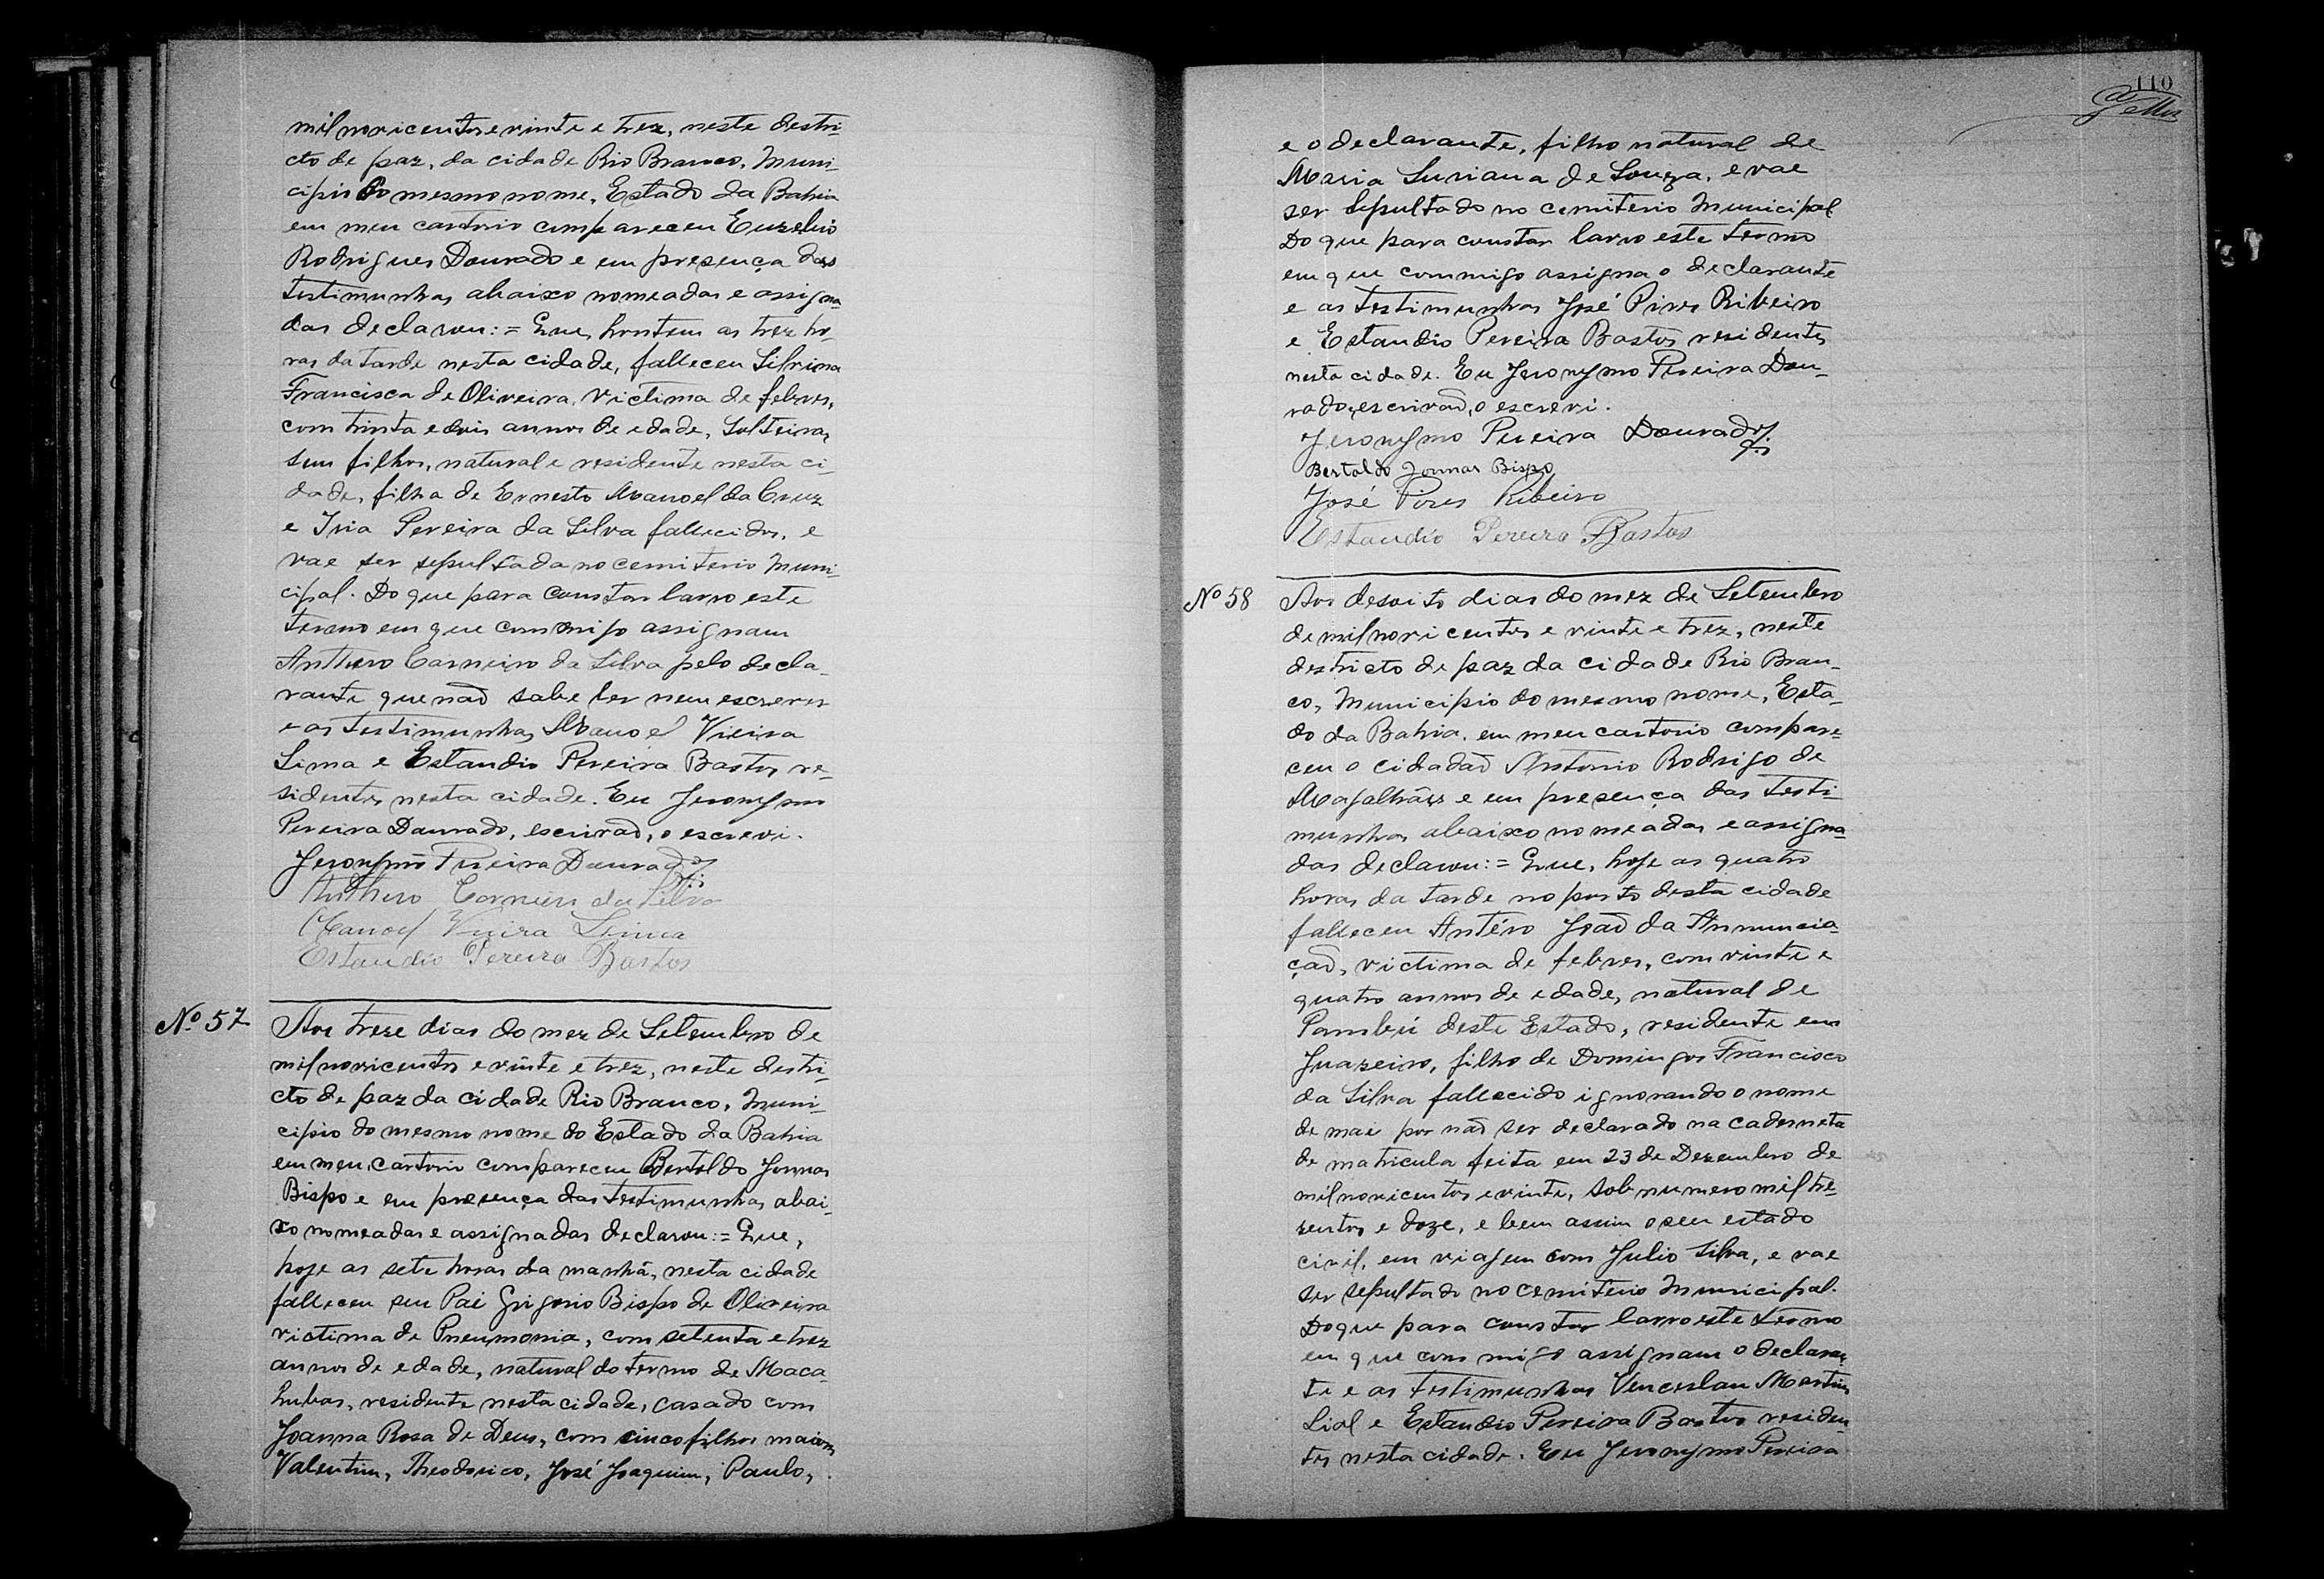 mil novicentos e vinte e trez, neste destri-
cto de paz, da cidade Rio Branco, Muni-
cipio do mesmo nome, Estado da Bahia
em meu cartorio compareceu Euzebio
Rodrigues Dourado e em presença das
testimunhas abaixo nomeadas e assigna-
das declarou:= Que, hontem as trez ho-
ras da tarde nesta cidade, falleceu Silvina
Francisca de Oliveira, victima de febres,
com trinta e dois annos de edade, Solteira,
sem filhos, natural e residente nesta ci-
dade, filha de Ernesto Manoel da Cruz
e Iria Pereira da Silva fallecidos, e
vae ser sepultada no cemiterio Muni-
cipal. Do que para constar lavro este
termo em que commigo assignam
Anthero Carneiro da Silva pelo decla-
rante que não sabe ler nem escrever
e as testimunhas Manoel Vieira
Lima e Estandio Pereira Bastos re-
sidentes nesta cidade. Eu Jeronymo
Pereira Dourado, escrivão, o escrevi.
Jeronymo Pereira Dourado
Anthero Carneiro da Silva
Manoel Vieira Lima
Estandio Pereira Bastos
Nº 57
Aos treze dias do mez de Setembro de
mil novicentos e vinte e trez, neste destri-
cto de paz da cidade Rio Branco, Muni-
cipio do mesmo nome do Estado da Bahia
em meu cartorio compareceu Bertoldo Jonnas
Bispo e em presença das testimunhas abai-
xo nomeadas e assignadas declarou:= Que,
hoje as sete horas da manhã, nesta cidade
falleceu seu Pai Grigorio Bispo de Oliveira
victima de Pneumonia, com setenta e trez
annos de edade, natural do termo de Maca-
hubas, residente nesta cidade, casado com
Joanna Rosa de Deus, com cinco filhos maiores
Valentim, Theodorico, José Joaquim, Paulo,
110
e o declarante, filho natural de
Maria Suriana de Souza, e vae
ser sepultado no cemiterio Municipal
Do que para constar lavro este termo
em que commigo assigna o declarante
e as testimunhas José Pires Ribeiro
e Estandio Pereira Bastos residentes
nesta cidade. Eu Jeronymo Pereira Dou-
rado, escrivão, o escrevi.
Jeronymo Pereira Dourado
Bertoldo Jonnas Bispo
José Pires Ribeiro
Estandio Pereira Bastos
Nº 58
Aos desoito dias do mez de Setembro
de mil novicentos e vinte e trez, neste
destricto de paz da cidade Rio Bran-
co, Municipio do mesmo nome, Esta-
do da Bahia, em meu cartorio compare-
ceu o cidadão Antonio Rodrigo de
Magalhães e em presença das testi-
munhas abaixo nomeadas e assigna-
das declarou:= Que, hoje as quatro
horas da tarde no porto desta cidade
falleceu Antéro João da Annuncia-
ção, victima de febres, com vinte e
quatro annos de edade, natural de
Pambú deste Estado, residente em
Juazeiro, filho de Domingos Francisco
da Silva fallecido ignorando o nome
de mai por não ser declarado na caderneta
de matricula feita em 23 de Dezembro de
mil novicentos e vinte, sob numero mil tre-
zentos e doze, e bem assim o seu estado
civil, em viagem com Julio Silva, e vae
ser sepultado no cemiterio Municipal.
Do que para constar lavro este termo
em que commigo assignam o declaran-
te e as testimunhas Venceslau Martins
Lial e Estandio Pereira Bastos residen-
tes nesta cidade. Eu Jeronymo Pereira